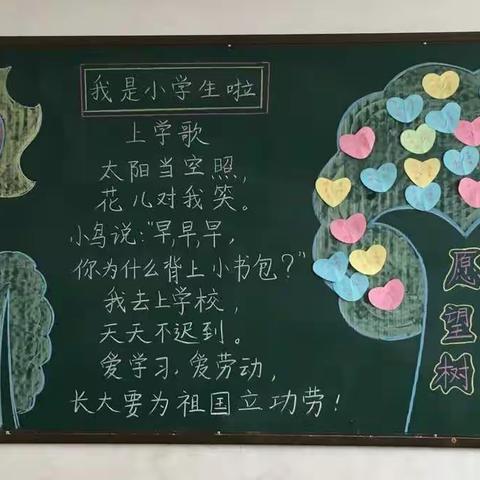 我是小学生啦
上学歌
太阳当空照,
花儿对我笑。
小鸟说:"早,早,早,
你为什么背上小书包?"
我去上学校,
天天不迟到。
爱学习,爱劳动,
长大要为祖国立功劳!
愿望树